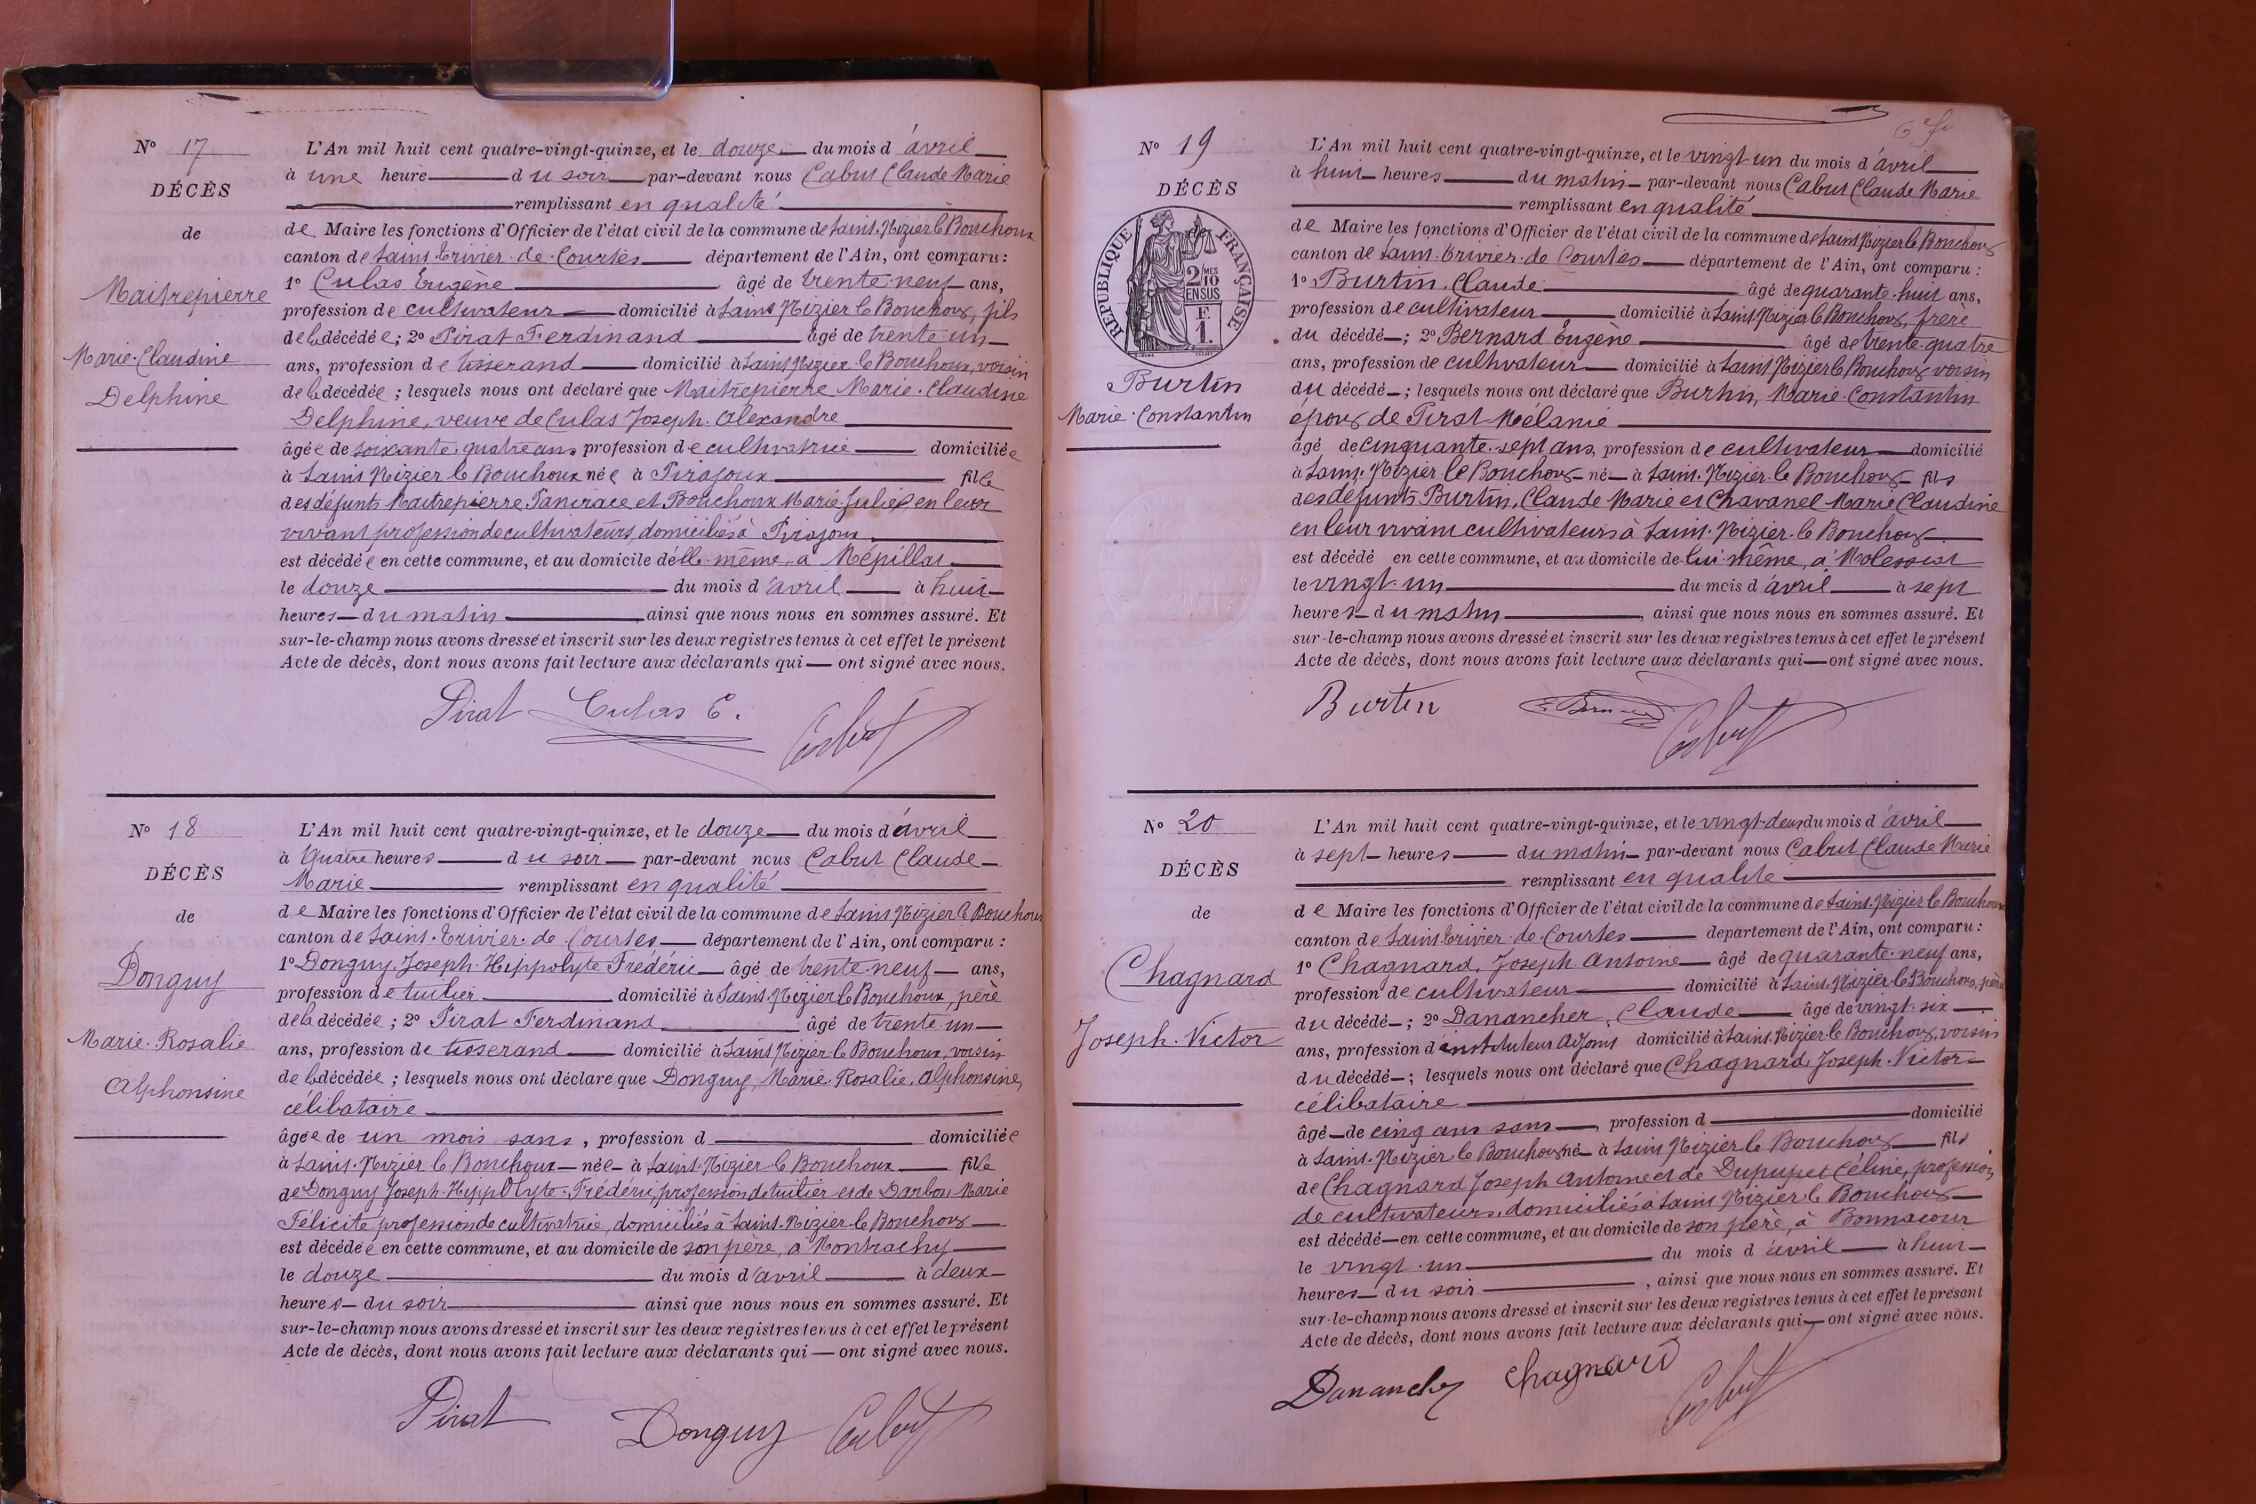 N° 17
DÉCÈS
de
Maitrepierre
Marie-Claudine
Delphine
L'An mil huit cent quatre-vingt-quinze, et le douze du mois d'avril
à une heure du soir par-devant nous Cabut Claude Marie
remplissant en qualité
de Maire les fonctions d'Officier de l'état civil de la commune de Saint-Nizier le Bouchoux
canton de Saint-Trivier-de-Courtes département de l'Ain, ont comparu :
1° Culas Eugène âgé de trente-neuf ans,
profession de cultivateur domicilié à Saint Nizier le Bouchoux, fils
de la décédée ; 2° Pirat Ferdinand âgé de trente-un
ans, profession de tisserand domicilié à Saint Nizier le Bouchoux, voisin
de la décédée ; lesquels nous ont déclaré que Maitrepierre Marie-Claudine
Delphine, veuve de Culas Joseph-Alexandre
âgée de soixante-quatre ans profession de cultivatrice domiciliée
à Saint Nizier le Bouchoux née à Pirajoux fille
des défunts Maitrepierre Pancrace et Bouchoux Marie-Julie en leur
vivant profession de cultivateurs domiciliés à Pirajoux
est décédée en cette commune, et au domicile d'elle-même, à Mépillat
le douze du mois d'avril à huit
heures du matin ainsi que nous nous en sommes assuré. Et
sur-le-champ nous avons dressé et inscrit sur les deux registres tenus à cet effet le présent
Acte de décès, dont nous avons fait lecture aux déclarants qui ont signé avec nous.
Pirat Culas E. Cabut
N° 18
DÉCÈS
de
Donguy
Marie-Rosalie
Alphonsine
L'An mil huit cent quatre-vingt-quinze, et le douze du mois d'avril
à Quatre heures du soir par-devant nous Cabut Claude
Marie remplissant en qualité
de Maire les fonctions d'Officier de l'état civil de la commune de Saint Nizier le Bouchoux
canton de Saint-Trivier-de-Courtes département de l'Ain, ont comparu :
1° Donguy, Joseph-Hippolyte Frédéric âgé de trente-neuf ans,
profession de tuilier domicilié à Saint-Nizier le Bouchoux, père
de la décédée ; 2° Pirat Ferdinand âgé de trente-un
ans, profession de tisserand domicilié à Saint Nizier le Bouchoux, voisin
de la décédée ; lesquels nous ont déclaré que Donguy, Marie-Rosalie, Alphonsine,
célibataire
âgée de un mois sans, profession d domiciliée
à Saint-Nizier le Bouchoux née à Saint-Nizier-le Bouchoux fille
de Donguy Joseph-Hippolyte-Frédéric, profession de tuilier et de Darbon Marie
Félicité profession de cultivatrice, domiciliés à Saint-Nizier-le Bouchoux
est décédée en cette commune, et au domicile de son père, à Montrachy
le douze du mois d'avril à deux
heures du soir ainsi que nous nous en sommes assuré. Et
sur-le-champ nous avons dressé et inscrit sur les deux registres tenus à cet effet le présent
Acte de décès, dont nous avons fait lecture aux déclarants qui ont signé avec nous.
Pirat Donguy Cabut
N° 19
DÉCÈS
RÉPUBLIQUE FRANÇAISE
2 MES
10
EN SUS
F.
1.
Burtin
Marie-Constantin
L'An mil huit cent quatre-vingt-quinze, et le vingt-un du mois d'avril
à huit heures du matin par-devant nous Cabut Claude Marie
remplissant en qualité
de Maire les fonctions d'Officier de l'état civil de la commune de Saint Nizier le Bouchoux
canton de Saint-Trivier-de Courtes département de l'Ain, ont comparu :
1° Burtin, Claude âgé de quarante-huit ans,
profession de cultivateur domicilié à Saint-Nizier le Bouchoux, frère
du décédé ; 2° Bernard Eugène âgé de trente-quatre
ans, profession de cultivateur domicilié à Saint Nizier le Bouchoux voisin
du décédé ; lesquels nous ont déclaré que Burtin, Marie-Constantin
époux de Pirat Mélanie
âgé de cinquante-sept ans, profession de cultivateur domicilié
à Saint-Nizier le Bouchoux né à Saint-Nizier-le Bouchoux fils
des défunts Burtin, Claude Marie et Chavanel Marie Claudine
en leur vivant cultivateurs à Saint-Nizier-le Bouchoux
est décédé en cette commune, et au domicile de lui-même, à Molessiat
le vingt-un du mois d'avril à sept
heures du matin, ainsi que nous nous en sommes assuré. Et
sur-le-champ nous avons dressé et inscrit sur les deux registres tenus à cet effet le présent
Acte de décès, dont nous avons fait lecture aux déclarants qui ont signé avec nous.
Burtin E. Bernard Cabut
N° 20
DÉCÈS
de
Chagnard
Joseph-Victor
L'An mil huit cent quatre-vingt-quinze, et le vingt-deux du mois d'avril
à sept heures du matin par-devant nous Cabut Claude Marie
remplissant en qualité
de Maire les fonctions d'Officier de l'état civil de la commune de Saint-Nizier le Bouchoux
canton de Saint Trivier-de-Courtes département de l'Ain, ont comparu :
1° Chagnard, Joseph Antoine âgé de quarante-neuf ans,
profession de cultivateur domicilié à Saint-Nizier le Bouchoux, père
du décédé ; 2° Danancher, Claude âgé de vingt-six
ans, profession d'instituteur adjoint domicilié à Saint-Nizier-le Bouchoux, voisin
du décédé ; lesquels nous ont déclaré que Chagnard, Joseph-Victor
célibataire
âgé de cinq ans sans, profession d domicilié
à Saint-Nizier-le Bouchoux né à Saint Nizier le Bouchoux fils
de Chagnard Joseph Antoine et de Dupupet Céline, profession
de cultivateurs, domiciliés à Saint Nizier-le Bouchoux
est décédé en cette commune, et au domicile de son père, à Bonnacour
le vingt-un du mois d'avril à huit
heures du soir, ainsi que nous nous en sommes assuré. Et
sur-le-champ nous avons dressé et inscrit sur les deux registres tenus à cet effet le présent
Acte de décès, dont nous avons fait lecture aux déclarants qui ont signé avec nous.
Danancher Chagnard Cabut